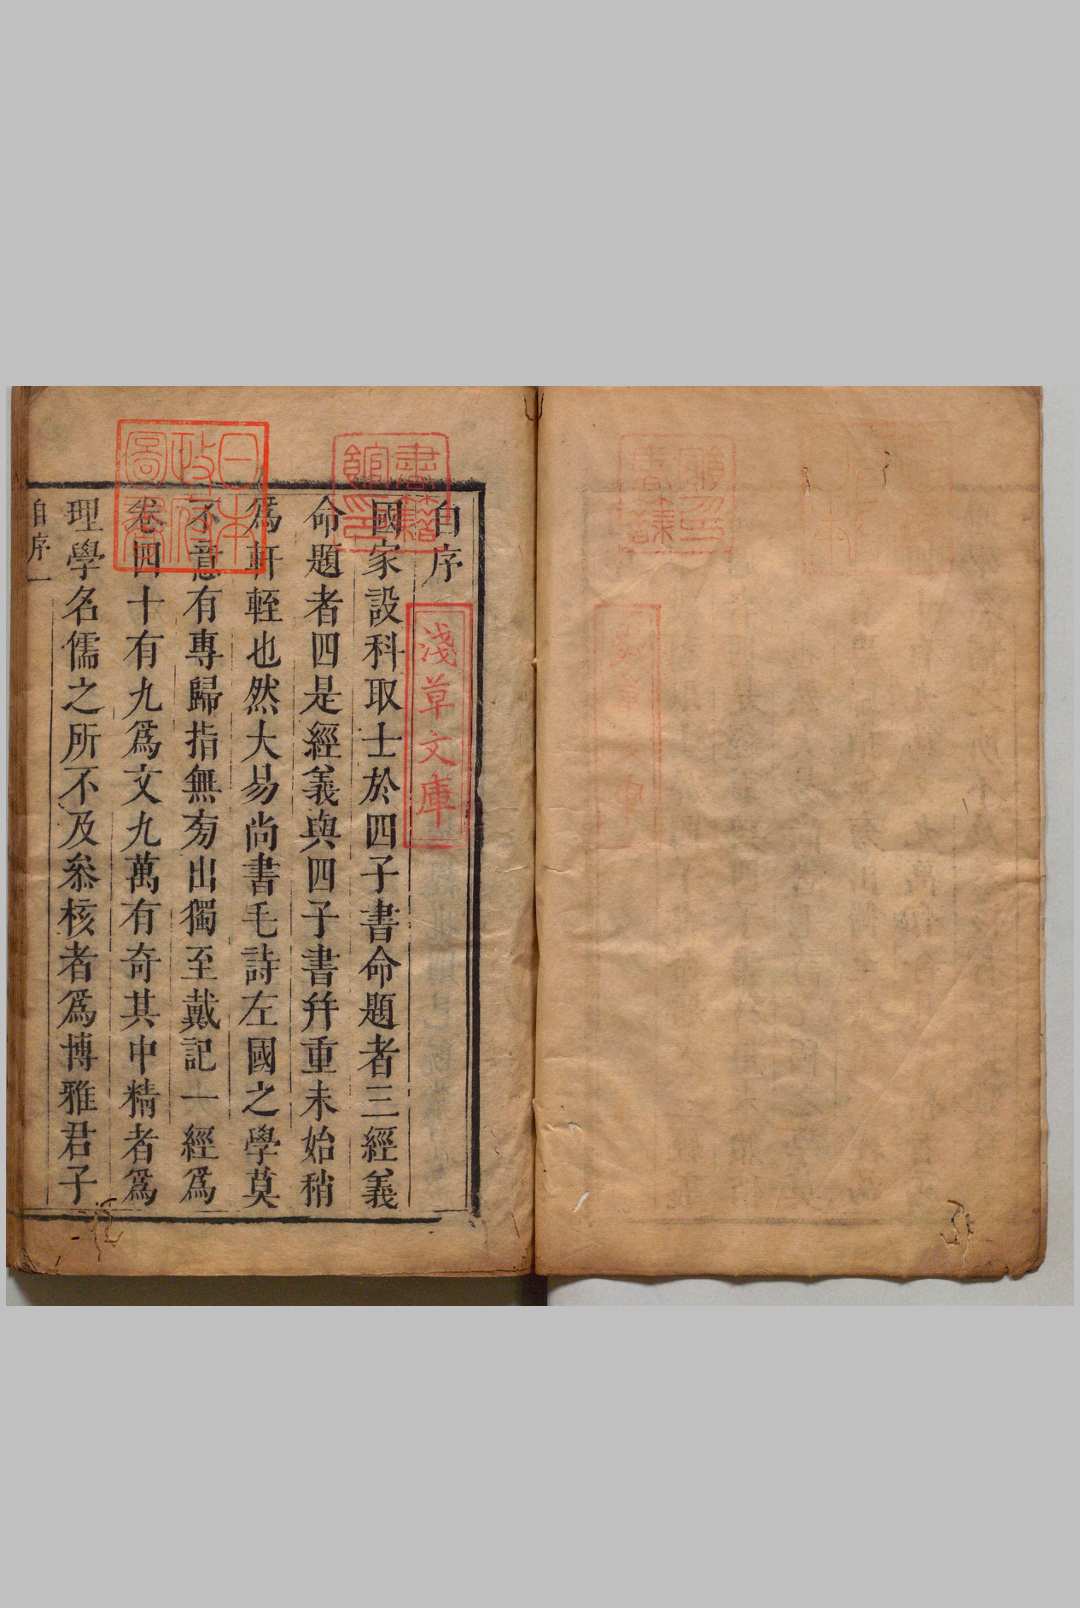 自序
國家設科取士於四子書命題者三經義
命題者四是經義與四子書幷重未始稍
爲軒輊也然大易尚書毛詩左國之學莫
不意有專歸指無旁出獨至戴記一經爲
卷四十有九爲文九萬有奇其中精者爲
理學名儒之所不及叅核者爲博雅君子
自序 一
淺草文庫
書籍館印
日本政府圖書